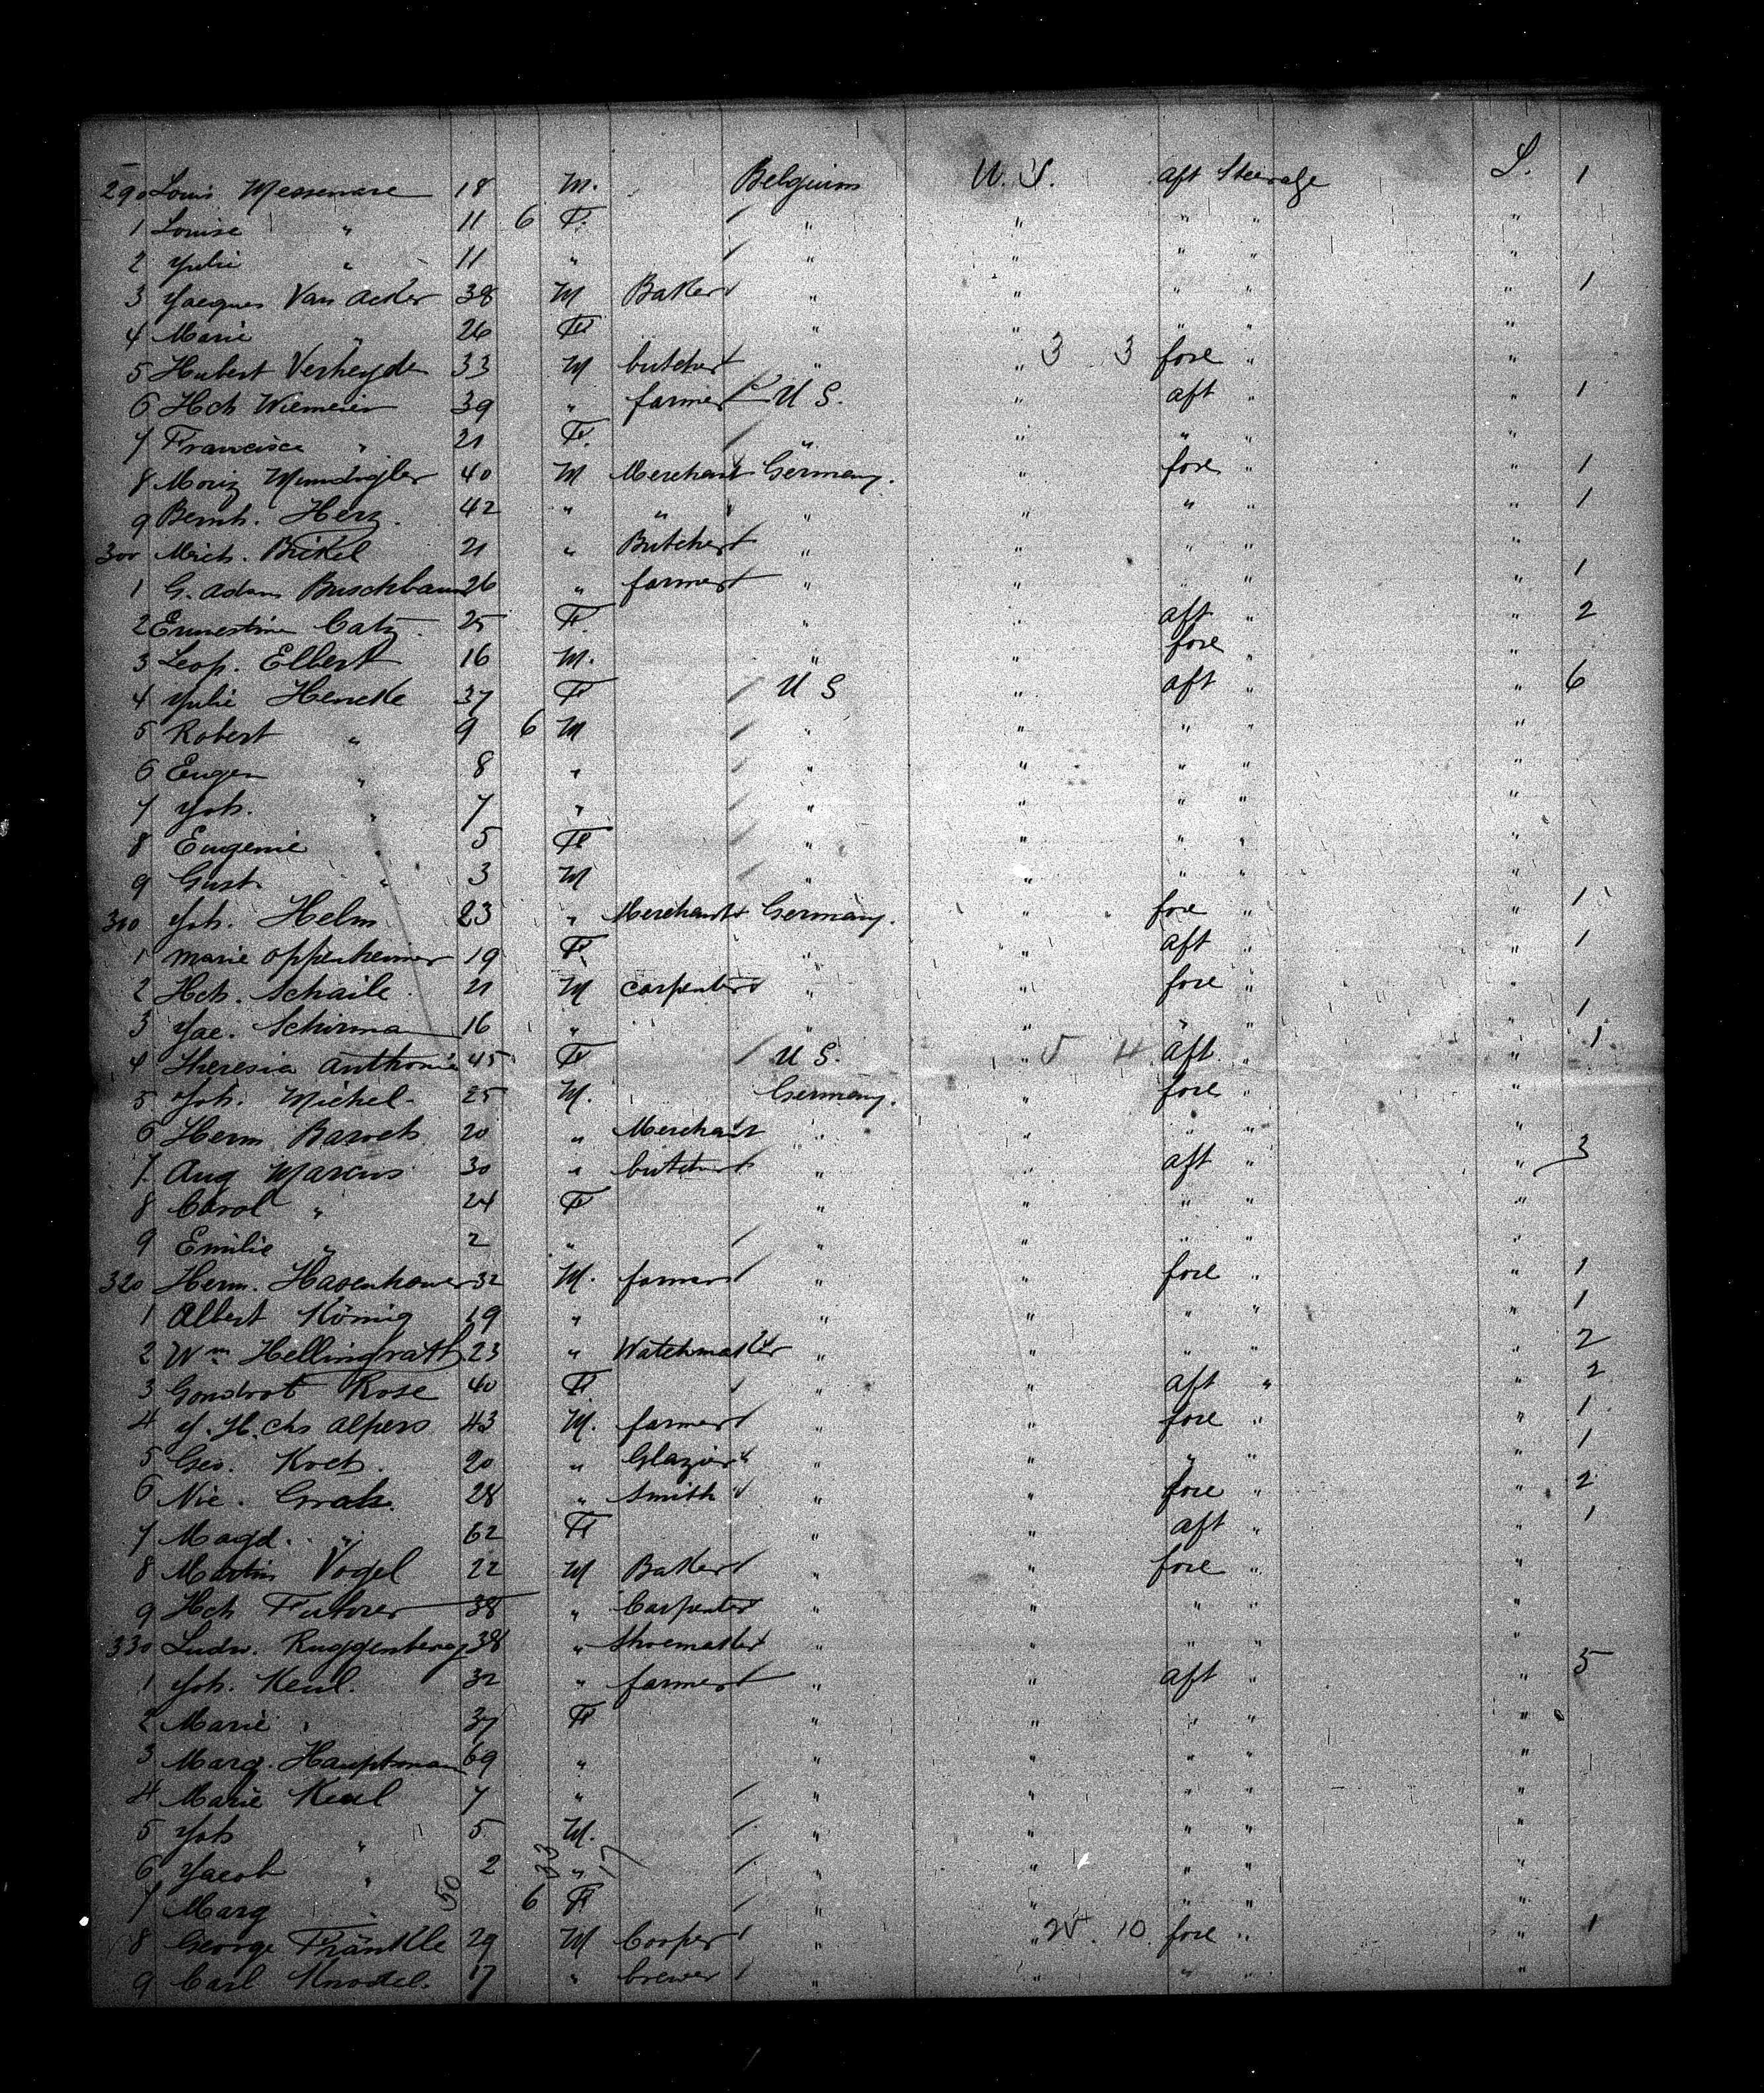 290 Louis Messemare 18 M. Belgium U. S. aft Steerage S. 1
1 Louise " 11 6 F. " " " " "
2 Julie " 11 " " " " " "
3 Jacques Van Acker 38 M Baker " " " " " 1
4 Marie " 26 F " " " " "
5 Hubert Verheyde 33 M butcher " " 3 3 fore " "
6 Hch Wiemeier 39 " farmer U S. " aft " " 1
7 Francisca " 21 F. " " " " "
8 Moriz 40 M Merchant Germany. " fore " " 1
9 Bernh. Herz. 42 " " " " " " " 1
300 Mich. Bickel 21 " Butcher " " " " "
1 G. Adam Buschbaum 26 " farmer " " " " " 1
2 Ernestine Catz. 25 F. " " aft " " 2
3 Leop. Elbert 16 M. " " fore " "
4 Julie Hencke 37 F U S " aft " " 6
5 Robert " 9 6 M " " " " "
6 Eugen " 8 " " " " " "
7 Joh. " 7 " " " " " "
8 Eugenie " 5 F " " " " "
9 Gust. " 3 M " " " " "
310 Joh. Helm 23 " Merchant Germany. " fore " " 1
1 Marie Oppenheimer 19 F. " " aft " " 1
2 Hch. Schaile 21 M carpenter " " fore " "
3 Jac. Schirma 16 " " " " " " 1
4 Theresia Anthonie 45 F U S. " 5 4 aft " " 1
5 Joh. Michel 25 M. Germany. " fore " "
6 Herm Baroch 20 " Merchant " " " " "
7 Aug Marcus 30 " butcher " " aft " " 3
8 Carol " 24 F " " " " "
9 Emilie " 2 " " " " " "
320 Herm. Hasenhauer 32 M. farmer " " fore " " 1
1 Albert König 19 " " " " " " 1
2 Wm Hellingrath 23 " Watchmaker " " " " " 2
3 Gondrot Rose 40 F " " aft " " 2
4 J. H. Chs Alpers 43 M. farmer " " fore " " 1
5 Geo. Koch. 20 " Glazier " " " " " 1
6 Nic. Grah. 28 " Smith " " fore " " 2
7 Magd. " 62 F " " aft " " 1
8 Martin Vogel 22 M Baker " " fore " "
9 Hch Futhrer 38 " Carpenter " " " " "
330 Ludw. Ruggenberg 38 " Shoemaker " " " " "
1 Joh. Keul. 32 " farmer " " aft " " 5
2 Marie " 37 F " " " " "
3 Marg. Hauptman 69 " " " " " "
4 Marie Keul 7 " " " " " "
5 Joh " 5 M. " " " " "
6 Jacob " 2 33 " 17 " " " " "
7 Marg " 50 6 F " " " " "
8 George Fränkle 29 M Cooper " " 25. 10. fore " " 1
9 Carl Knodel. 17 " brewer " " " " "